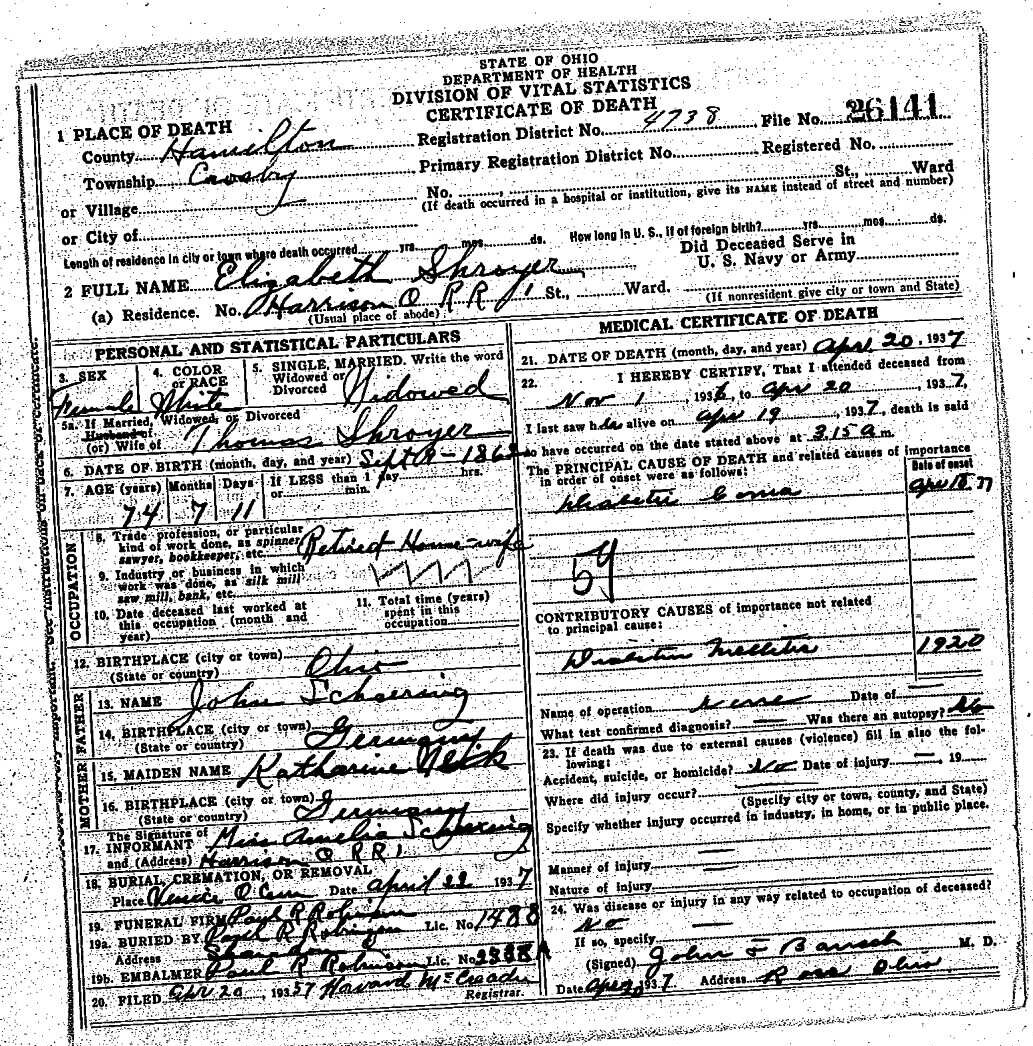 STATE OF OHIO
DEPARTMENT OF HEALTH
DIVISION OF VITAL STATISTICS
CERTIFICATE OF DEATH
1 PLACE OF DEATH
County Hamilton Registration District No. 4738 File No. 26141
Township Crosby Primary Registration District No. Registered No.
or Village No. , St., Ward
(If death occurred in a hospital or institution, give its NAME instead of street and number)
or City of
Length of residence in city or town where death occurred yrs. mos. ds. How long in U. S., if of foreign birth? yrs. mos. ds.
2 FULL NAME Elizabeth Shroyer Did Deceased Serve in U. S. Navy or Army
(a) Residence. No. Harrison O RR 1 St., Ward.
(Usual place of abode) (If nonresident give city or town and State)
PERSONAL AND STATISTICAL PARTICULARS
3. SEX 4. COLOR or RACE 5. SINGLE, MARRIED. Write the word Widowed or Divorced
Female White Widowed
5a. If Married, Widowed, or Divorced
Husband of
(or) Wife of Thomas Shroyer
6. DATE OF BIRTH (month, day, and year) Sept 9 - 1862
7. AGE (years) Months Days If LESS than 1 day hrs. or min.
74 7 11
OCCUPATION
8. Trade profession, or particular kind of work done, as spinner sawyer, bookkeeper, etc. Retired House-wife
9. Industry or business in which work was done, as silk mill saw mill, bank, etc.
10. Date deceased last worked at this occupation (month and year)
11. Total time (years) spent in this occupation
12. BIRTHPLACE (city or town)
(State or country) Ohio
FATHER
13. NAME John Schaering
14. BIRTHPLACE (city or town)
(State or country) Germany
MOTHER
15. MAIDEN NAME Katharine
16. BIRTHPLACE (city or town)
(State or country) Germany
17. The Signature of INFORMANT Miss Amelia Schaering
and (Address) Harrison O RR 1
18. BURIAL, CREMATION, OR REMOVAL
Place Venice O Cem Date April 22 1937
19. FUNERAL FIRM Paul R Robinson Lic. No. 1488
19a. BURIED BY Paul R Robinson
Address
19b. EMBALMER Paul R Robinson Lic. No. A
20. FILED Apr 20, 1937 Howard McCreadie
Registrar.
MEDICAL CERTIFICATE OF DEATH
21. DATE OF DEATH (month, day, and year) Apr 20, 1937
22. I HEREBY CERTIFY, That I attended deceased from
Nov 1, 1936, to Apr 20, 1937,
I last saw her alive on Apr 19, 1937, death is said
to have occurred on the date stated above at 3.15 a m.
The PRINCIPAL CAUSE OF DEATH and related causes of importance in order of onset were as follows: Date of onset
Diabetic Coma Apr 18 37
59
CONTRIBUTORY CAUSES of importance not related to principal cause:
Diabetis Mellitis 1920
Name of operation None Date of —
What test confirmed diagnosis? — Was there an autopsy? No
23. If death was due to external causes (violence) fill in also the following:
Accident, suicide, or homicide? No Date of injury —, 19
Where did injury occur?
(Specify city or town, county, and State)
Specify whether injury occurred in industry, in home, or in public place.
—
Manner of injury —
Nature of injury —
24. Was disease or injury in any way related to occupation of deceased?
No
If so, specify —
(Signed) John F Bausch M. D.
Date Apr 20 1937 Address Ross Ohio